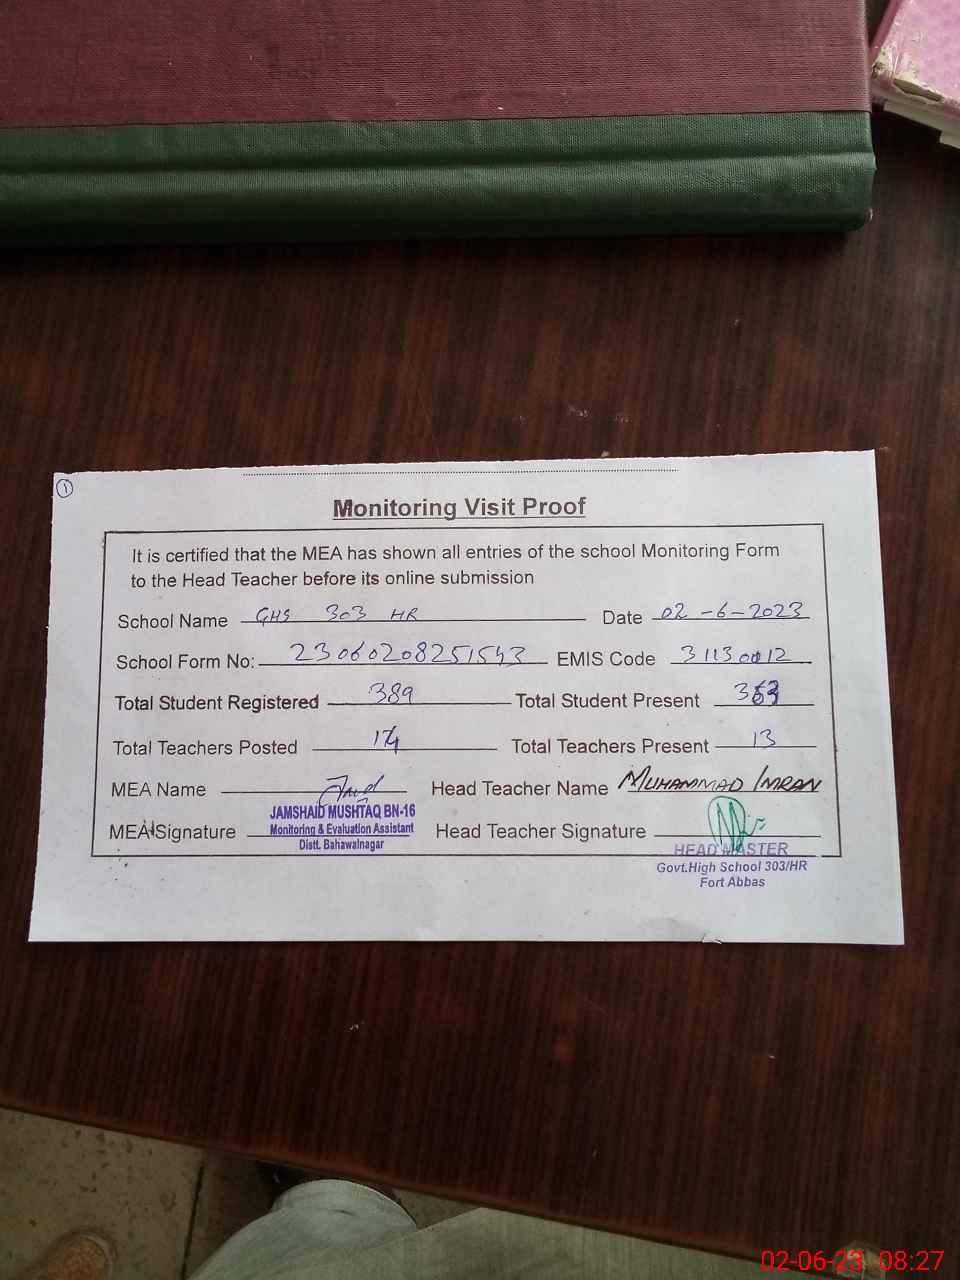 1
Monitoring Visit Proof
It is certified that the MEA has shown all entries of the school Monitoring Form
to the Head Teacher before its online submission
School Name GHS 303 HR Date 02-6-2023
School Form No: 23060208251543 EMIS Code 31130012
Total Student Registered 389 Total Student Present 353
Total Teachers Posted 14 Total Teachers Present 13
MEA Name Head Teacher Name MUHAMMAD IMRAN
JAMSHAID MUSHTAQ BN-16
MEA Signature Monitoring & Evaluation Assistant Head Teacher Signature
Distt. Bahawalnagar
HEAD MASTER
Govt.High School 303/HR
Fort Abbas
02-06-23 08:27